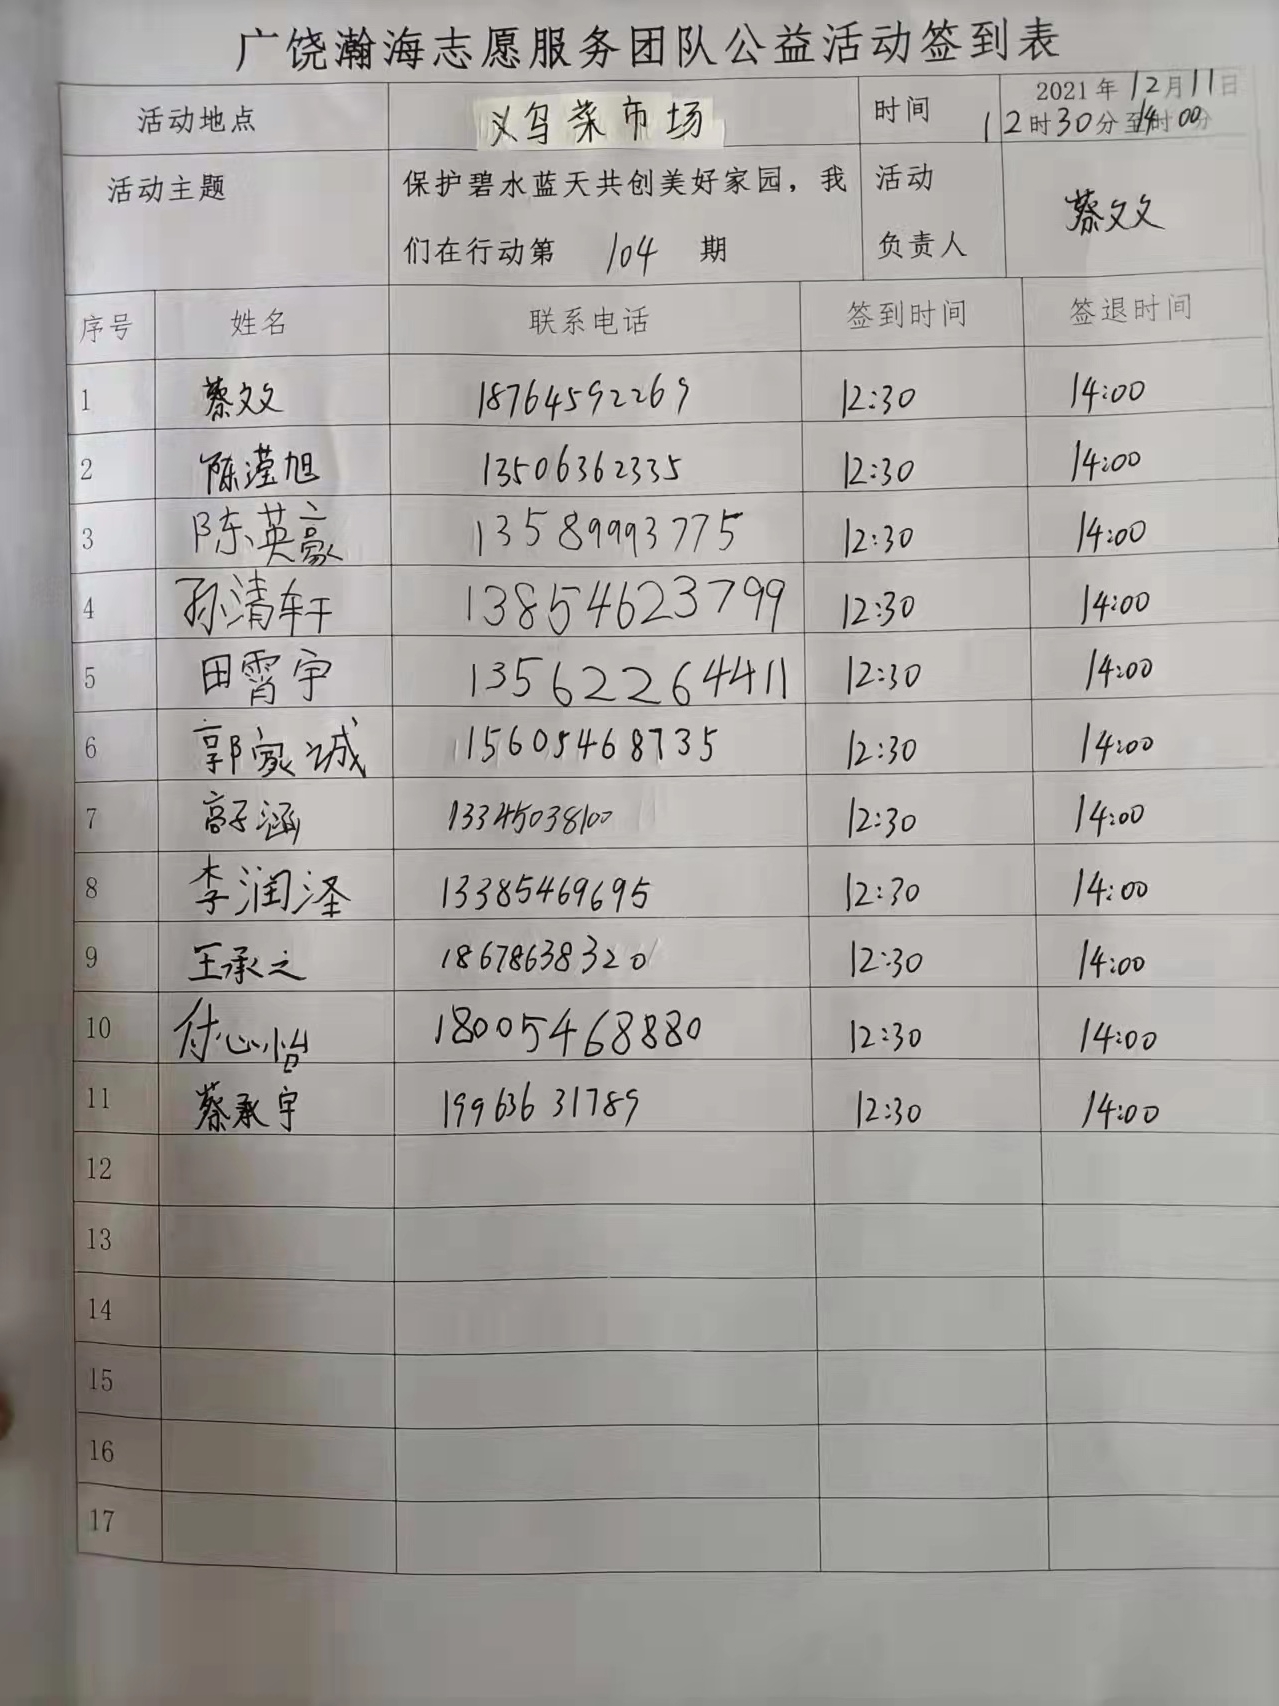 广饶瀚海志愿服务团队公益活动签到表
活动地点 义乌菜市场 时间 2021年12月11日
12时30分至14时00分
活动主题 保护碧水蓝天共创美好家园，我 活动
们在行动第 104 期 负责人 蔡文文
序号 姓名 联系电话 签到时间 签退时间
1 蔡文文 18764592269 12:30 14:00
2 陈滢旭 13506362335 12:30 14:00
3 陈英豪 13589993775 12:30 14:00
4 孙清轩 13854623799 12:30 14:00
5 田霄宇 13562264411 12:30 14:00
6 郭家诚 15605468735 12:30 14:00
7 高子涵 13345038100 12:30 14:00
8 李润泽 13385469695 12:30 14:00
9 王承之 18678638320 12:30 14:00
10 付心怡 18005468880 12:30 14:00
11 蔡承宇 19963631789 12:30 14:00
12
13
14
15
16
17